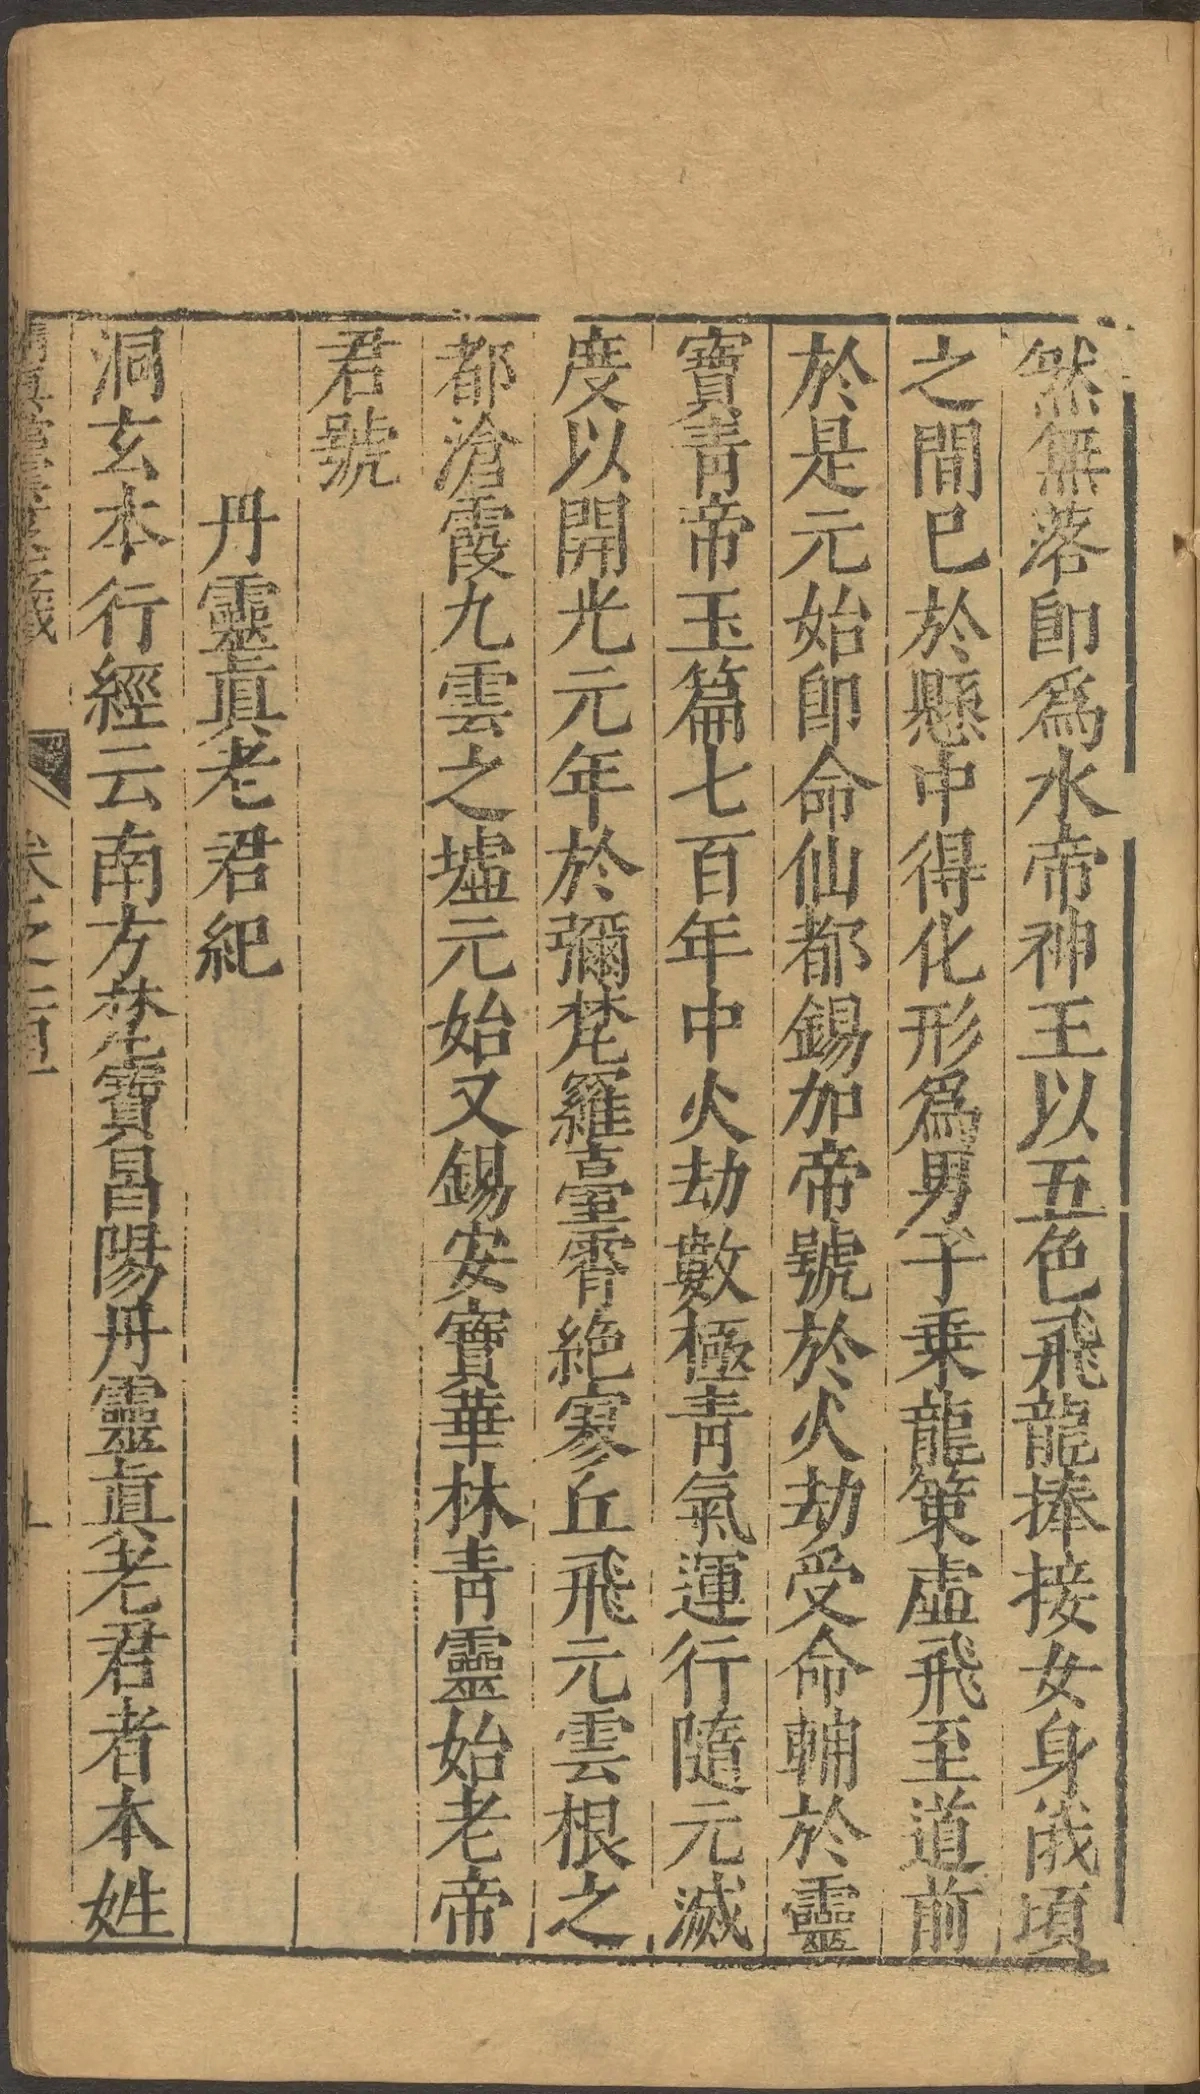 然無落即爲水帝神王以五色飛龍捧接女身俄頃
之間已於懸中得化形爲男子乗龍策虛飛至道前
於是元始即命仙都錫加帝號於火劫受命輔於靈
寶青帝玉篇七百年中火劫數極青氣運行隨元滅
度以開光元年於彌梵羅臺霄絶寥丘飛元雲根之
都滄霞九雲之墟元始又錫安寶華林青靈始老帝
君號
丹靈眞老君紀
洞玄本行經云南方梵寶昌陽丹靈眞老君者本姓
卷之二